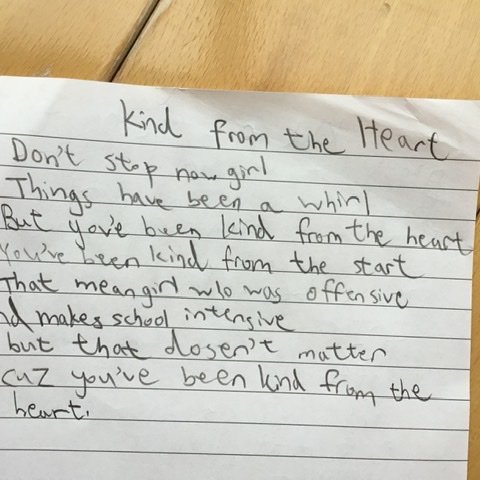 Kind from the Heart
Don't stop now girl
Things have been a whirl
But yov'e been kind from the heart
You've been kind from the start
That mean girl who was offensive
nd makes school intensive
but that dosen't matter
cuz you've been kind from the
heart.